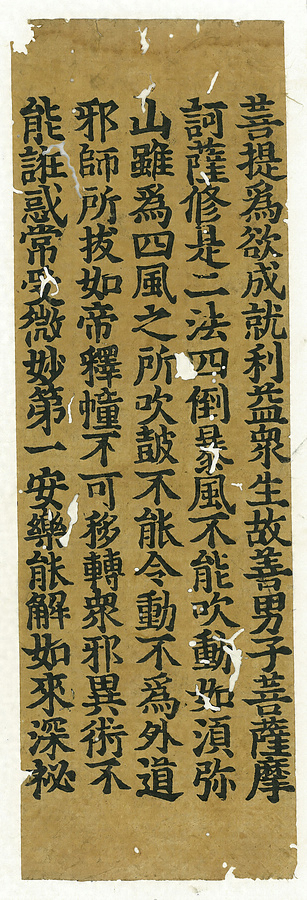 菩提爲欲成就利益衆生故善男子菩薩摩
訶薩修是二法四倒暴風不能吹動如湏弥
山雖爲四風之所吹鼓不能令動不爲外道
邪師所拔如帝釋幢不可移轉衆邪異術不
能誑惑常受微妙第一安樂能解如來深祕